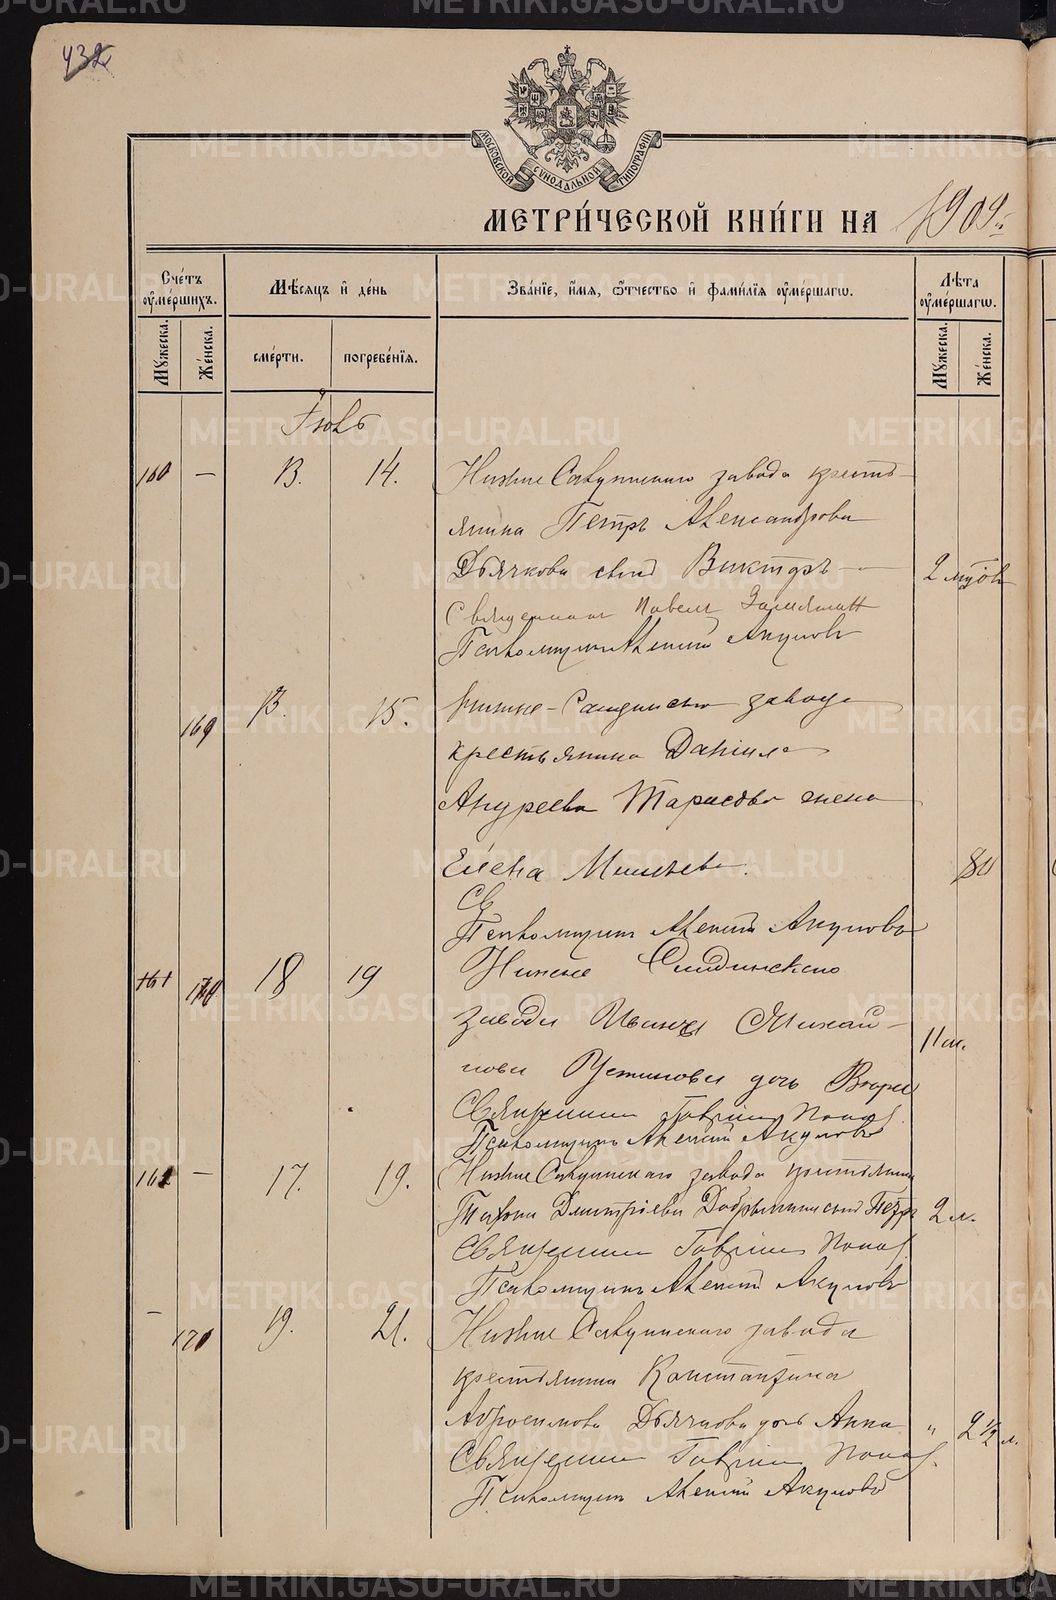 432
МОСКОВСКОЙ СѴНОДАЛЬНОЙ ТИПОГРАФІИ
МЕТРИ́ЧЕСКОЙ КНИ́ГИ НА 1909 г.
Сче́тъ оуме́ршихъ.
Мѣ́сяцъ и де́нь
Зва́нїе, и́мя, ѻ́тчество и фами́лїя оуме́ршагѡ.
Лѣ́та оуме́ршагѡ.
Мꙋ́жеска.
Же́нска.
сме́рти.
погребе́нїя.
Мꙋ́жеска.
Же́нска.
Іюль
160 — 13. 14. Нижне Салдинскаго завода кресть-
янина Петра Александрова
Дьячкова сынъ Викторъ — 2 мѣс
Священникъ Павелъ
Псаломщикъ Алексій Акуловъ
169 13. 15. Нижне-Салдинскаго завода
крестьянина Даніила
Андреева Тарасова жена
Елена 80
Св
Псаломщикъ Алексій Акуловъ
161 18 19 Нижне Салдинскаго
завода Ивана Михай-
лова Устинова дочь 11 м.
Священникъ Гавріилъ Попов
Псаломщикъ Алексій Акуловъ
161 — 17. 19. Нижне Салдинскаго завода крестьянина
Дмитріева Добрынина сынъ Петръ 2 л.
Священникъ Гавріилъ Попов
Псаломщикъ Алексій Акуловъ
— 170 19. 21. Нижне Салдинскаго завода
крестьянина Константина
Абросимова Дьячкова дочь Анна " 2 1/2 л.
Священникъ Гавріилъ Попов.
Псаломщикъ Алексій Акуловъ
METRIKI.GASO-URAL.RU